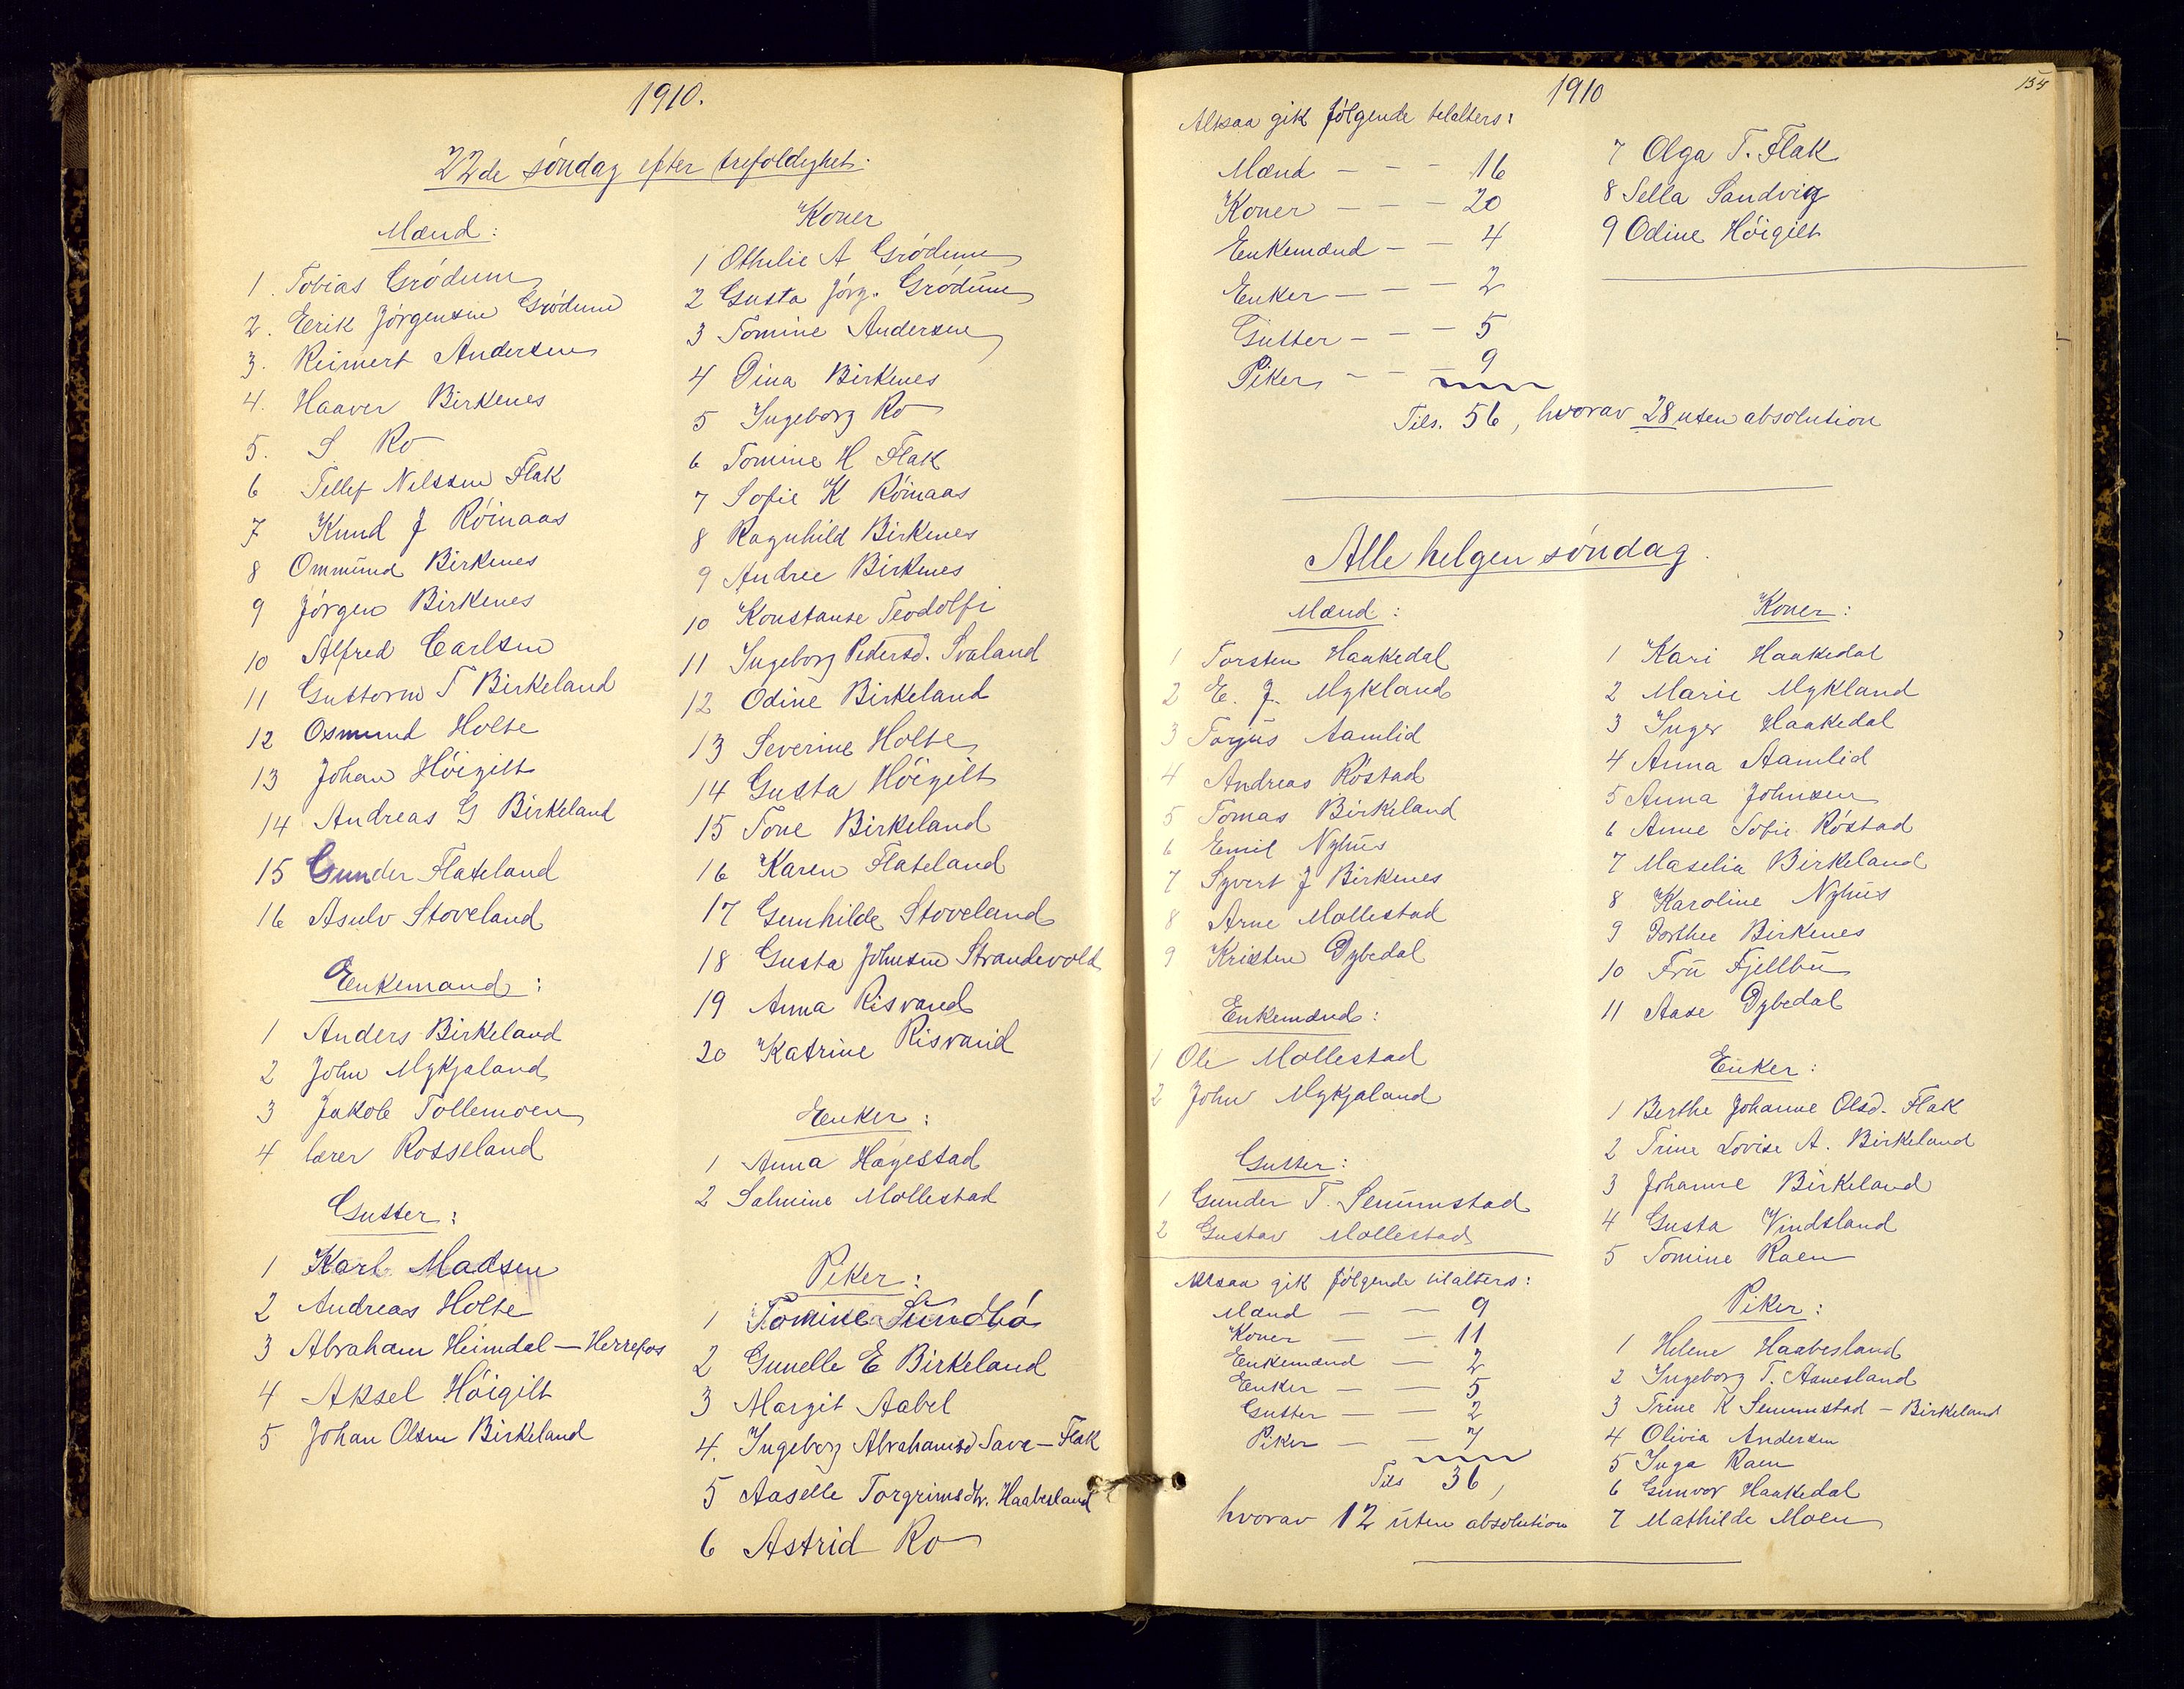 1910.
22de søndag efter trefoldighet.
Mænd:
1. Tobias Grødum
2. Eerik Jørgensen Grødum
3. Reimert Andersen
4. Haaver Birkenes
5. S Ro
6 Tellef Nilssen Flak
7 Knud J Røinaas
8 Ommund Birkenes
9 Jørgen Birkenes
10 Alfred Carlsen
11 Guttorm T Birkeland
12 Osmund Holte
13 Johan Høigilt
14 Andreas G Birkeland
15 Gunder Flateland
16 Asulv Stoveland
Enkemænd:
1 Anders Birkeland
2 John Mykjaland
3 Jakob Tollemoen
4 lærer Rosseland
Gutter:
1 Karl Madsen
2 Andreas Holte
3 Abraham Heimdal — Herrefos
4 Aksel Høigilt
5 Johan Olsen Birkeland
Koner
1 Othilie A Grødum
2 Gusta Jørg. Grødum
3 Tomine Andersen
4 Dina Birkenes
5 Ingeborg Ro
6 Tomine H Flak
7 Sofie K Røinaas
8 Ragnhild Birkenes
9 Andree Birkenes
10 Konstanse Teodolfi
11 Ingeborg Pedersd. Svaland
12 Odine Birkeland
13 Severine Holte
14 Gusta Høigilt
15 Tone Birkeland
16 Karen Flateland
17 Gunhilde Stoveland
18 Gusta Johnsen Strandevold
19 Anna Risvand
20 Katrine Risvand
Enker:
1 Anna Høgestad
2 Salmine Mollestad
Piker:
1 Tomine Sundbø
2 Gunelle E Birkeland
3 Margit Aabel
4. Ingeborg Abrahamsd Sava — Flak
5 Aaselle Torgrimsdtr. Haabesland
6 Astrid Ro
1910
154
Altsaa gik følgende tilalters:
Mænd — — 16
Koner — — — 20
Enkemænd — — 4
Enker — — — 2
Gutter — — — 5
Piker — — — 9
Tils. 56, hvorav 28 uten absolution
7 Olga T. Flak
8 Sella Sandvig
9 Odine Høigilt
Alle helgen søndag.
Mænd:
1 Torsten Haakedal
2 E. J. Mykland
3 Torjus Aamlid
4 Andreas Røstad
5 Tomas Birkeland
6 Emil Nyhus
7 Syvert J Birkenes
8 Arne Mollestad
9 Kristen Dybedal
Enkemænd:
1 Ole Mollestad
2 John Mykjaland
Gutter:
1 Gunder T. Senumstad
2 Gustav Mollestad
Altsaa gik følgende tilalters:
Mænd — — 9
Koner — — 11
Enkemænd — 2
Enker — — 5
Gutter — — 2
Piker — — 7
Tils 36,
hvorav 12 uten absolution
Koner:
1 Kari Haakedal
2 Marie Mykland
3 Inger Haakedal
4 Anna Aamlid
5 Anna Johnsen
6 Anne Sofie Røstad
7 Maselia Birkeland
8 Karoline Nyhus
9 Dorthee Birkenes
10 Fru Fjellbu
11 Aase Dybedal
Enker:
1 Berthe Johanne Olsd. Flak
2 Trine Lovise A. Birkeland
3 Johanne Birkeland
4 Gusta Vindsland
5 Tomine Raen
Piker:
1 Helene Haabesland
2 Ingeborg T. Aanesland
3 Trine K Senumstad — Birkeland
4 Olivia Andersen
5 Inga Raen
6 Gunvor Haakedal
7 Mathilde Moen